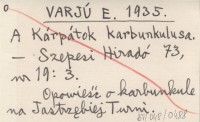 VARJÚ E. 1935.
A Kárpátok karbunkulusa.
– Szepesi Hiradó 73,
nr 19: 3.
Opowieść o karbunkule
na Jastrzębiej Turni.